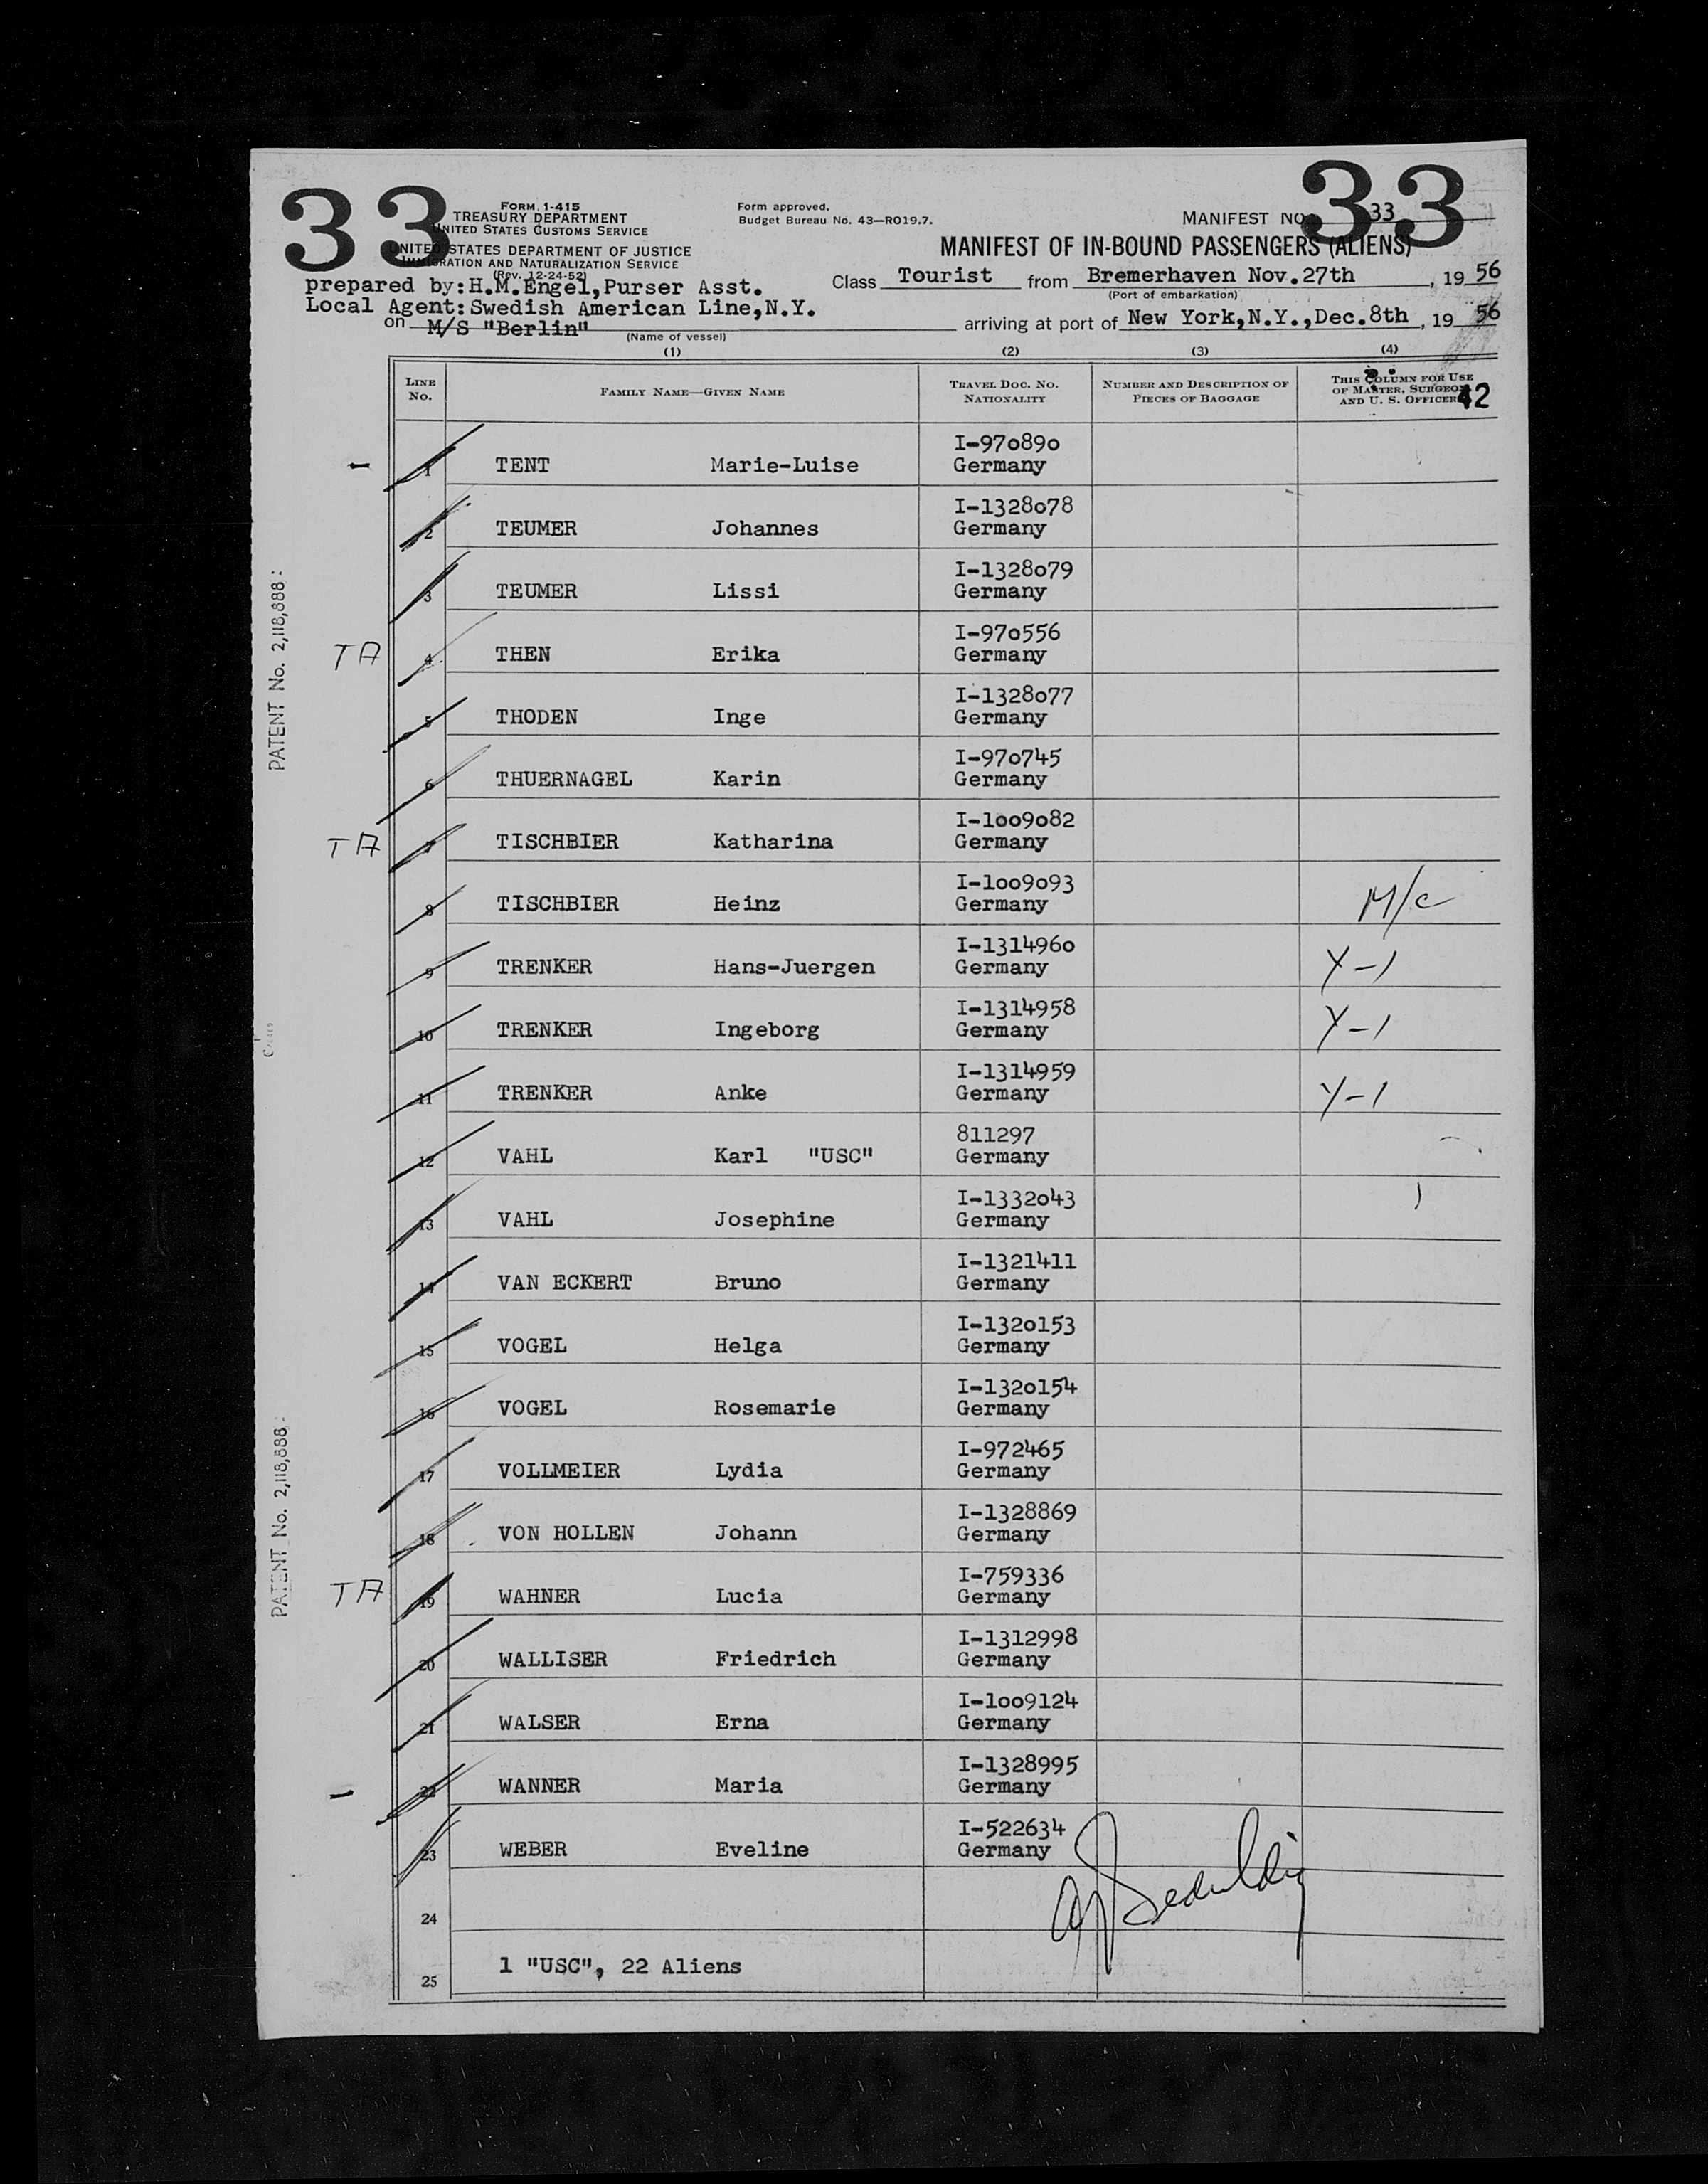 33
33
FORM 1-415
TREASURY DEPARTMENT
UNITED STATES CUSTOMS SERVICE
UNITED STATES DEPARTMENT OF JUSTICE
IMMIGRATION AND NATURALIZATION SERVICE
(Rev. 12-24-52)
Form approved.
Budget Bureau No. 43—RO19.7.
MANIFEST NO. 33
MANIFEST OF IN-BOUND PASSENGERS (ALIENS)
prepared by:H.M.Engel,Purser Asst.
Class Tourist from Bremerhaven Nov.27th, 1956
(Port of embarkation)
Local Agent:Swedish American Line,N.Y.
on M/S "Berlin" arriving at port of New York,N.Y.,Dec.8th, 1956
(Name of vessel)
(1) (2) (3) (4)
LINE NO. FAMILY NAME—GIVEN NAME TRAVEL DOC. NO. NATIONALITY NUMBER AND DESCRIPTION OF PIECES OF BAGGAGE THIS COLUMN FOR USE OF MASTER, SURGEON, AND U. S. OFFICERS
42
I-970890
- 1 TENT Marie-Luise Germany
I-1328078
2 TEUMER Johannes Germany
I-1328079
3 TEUMER Lissi Germany
I-970556
TA 4 THEN Erika Germany
I-1328077
5 THODEN Inge Germany
I-970745
6 THUERNAGEL Karin Germany
I-1009082
TA 7 TISCHBIER Katharina Germany
I-1009093
8 TISCHBIER Heinz Germany M/c
I-1314960
9 TRENKER Hans-Juergen Germany Y-1
I-1314958
10 TRENKER Ingeborg Germany Y-1
I-1314959
11 TRENKER Anke Germany Y-1
811297
12 VAHL Karl "USC" Germany
I-1332043
13 VAHL Josephine Germany
I-1321411
14 VAN ECKERT Bruno Germany
I-1320153
15 VOGEL Helga Germany
I-1320154
16 VOGEL Rosemarie Germany
I-972465
17 VOLLMEIER Lydia Germany
I-1328869
18 VON HOLLEN Johann Germany
I-759336
TA 19 WAHNER Lucia Germany
I-1312998
20 WALLISER Friedrich Germany
I-1009124
21 WALSER Erna Germany
I-1328995
- 22 WANNER Maria Germany
I-522634
23 WEBER Eveline Germany
24
25 1 "USC", 22 Aliens
PATENT No. 2,118,888
PATENT No. 2,118,888